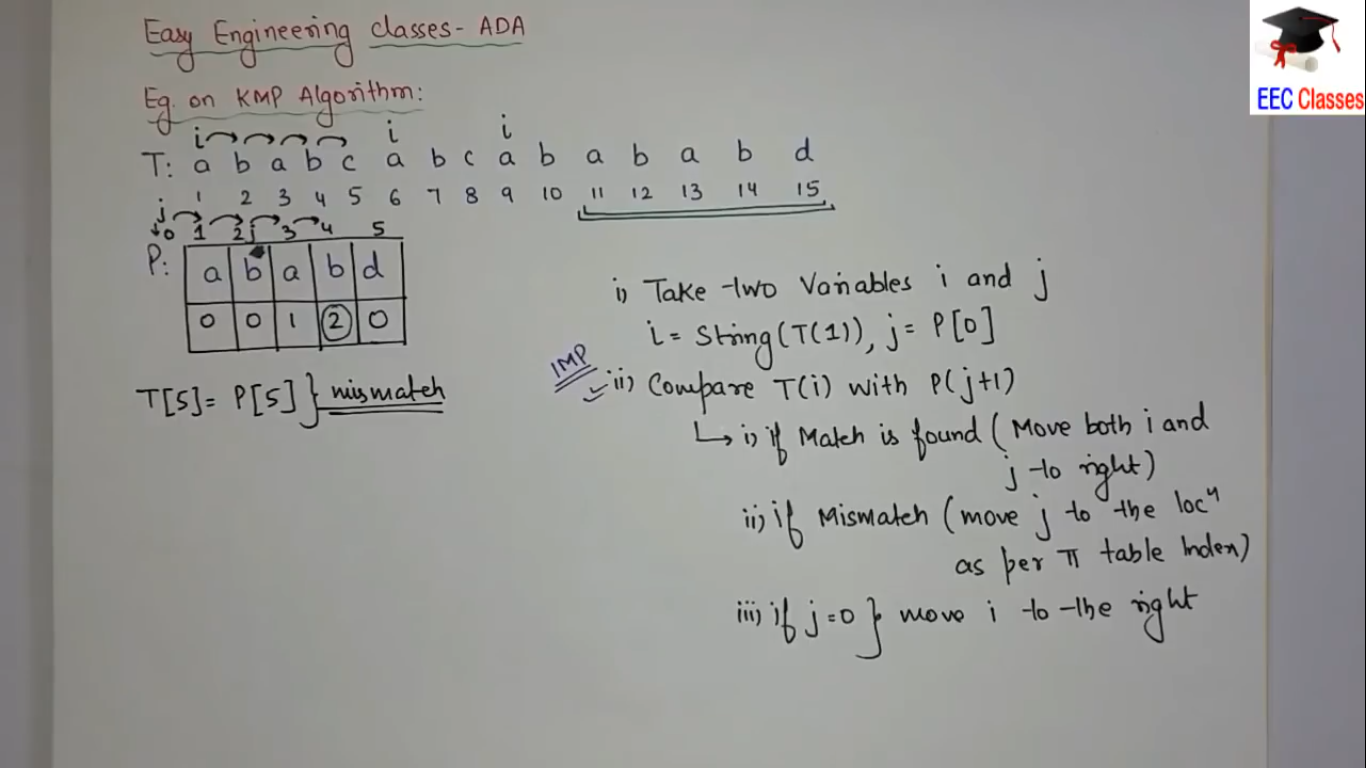 Easy Engineering classes- ADA
EEC Classes
Eg. on KMP Algorithm:
i i i
T: a b a b c a b c a b a b a b d
1 2 3 4 5 6 7 8 9 10 11 12 13 14 15
j
0 1 2 j 3 4 5
P: a b a b d
0 0 1 2 0
T[5]= P[5] } mismatch
i) Take two Variables i and j
i= String(T(1)), j= P[0]
IMP
ii) Compare T(i) with P(j+1)
i) if Match is found (Move both i and
j to right)
ii) if Mismatch (move j to the locⁿ
as per π table Index)
iii) if j=0 } move i to the right